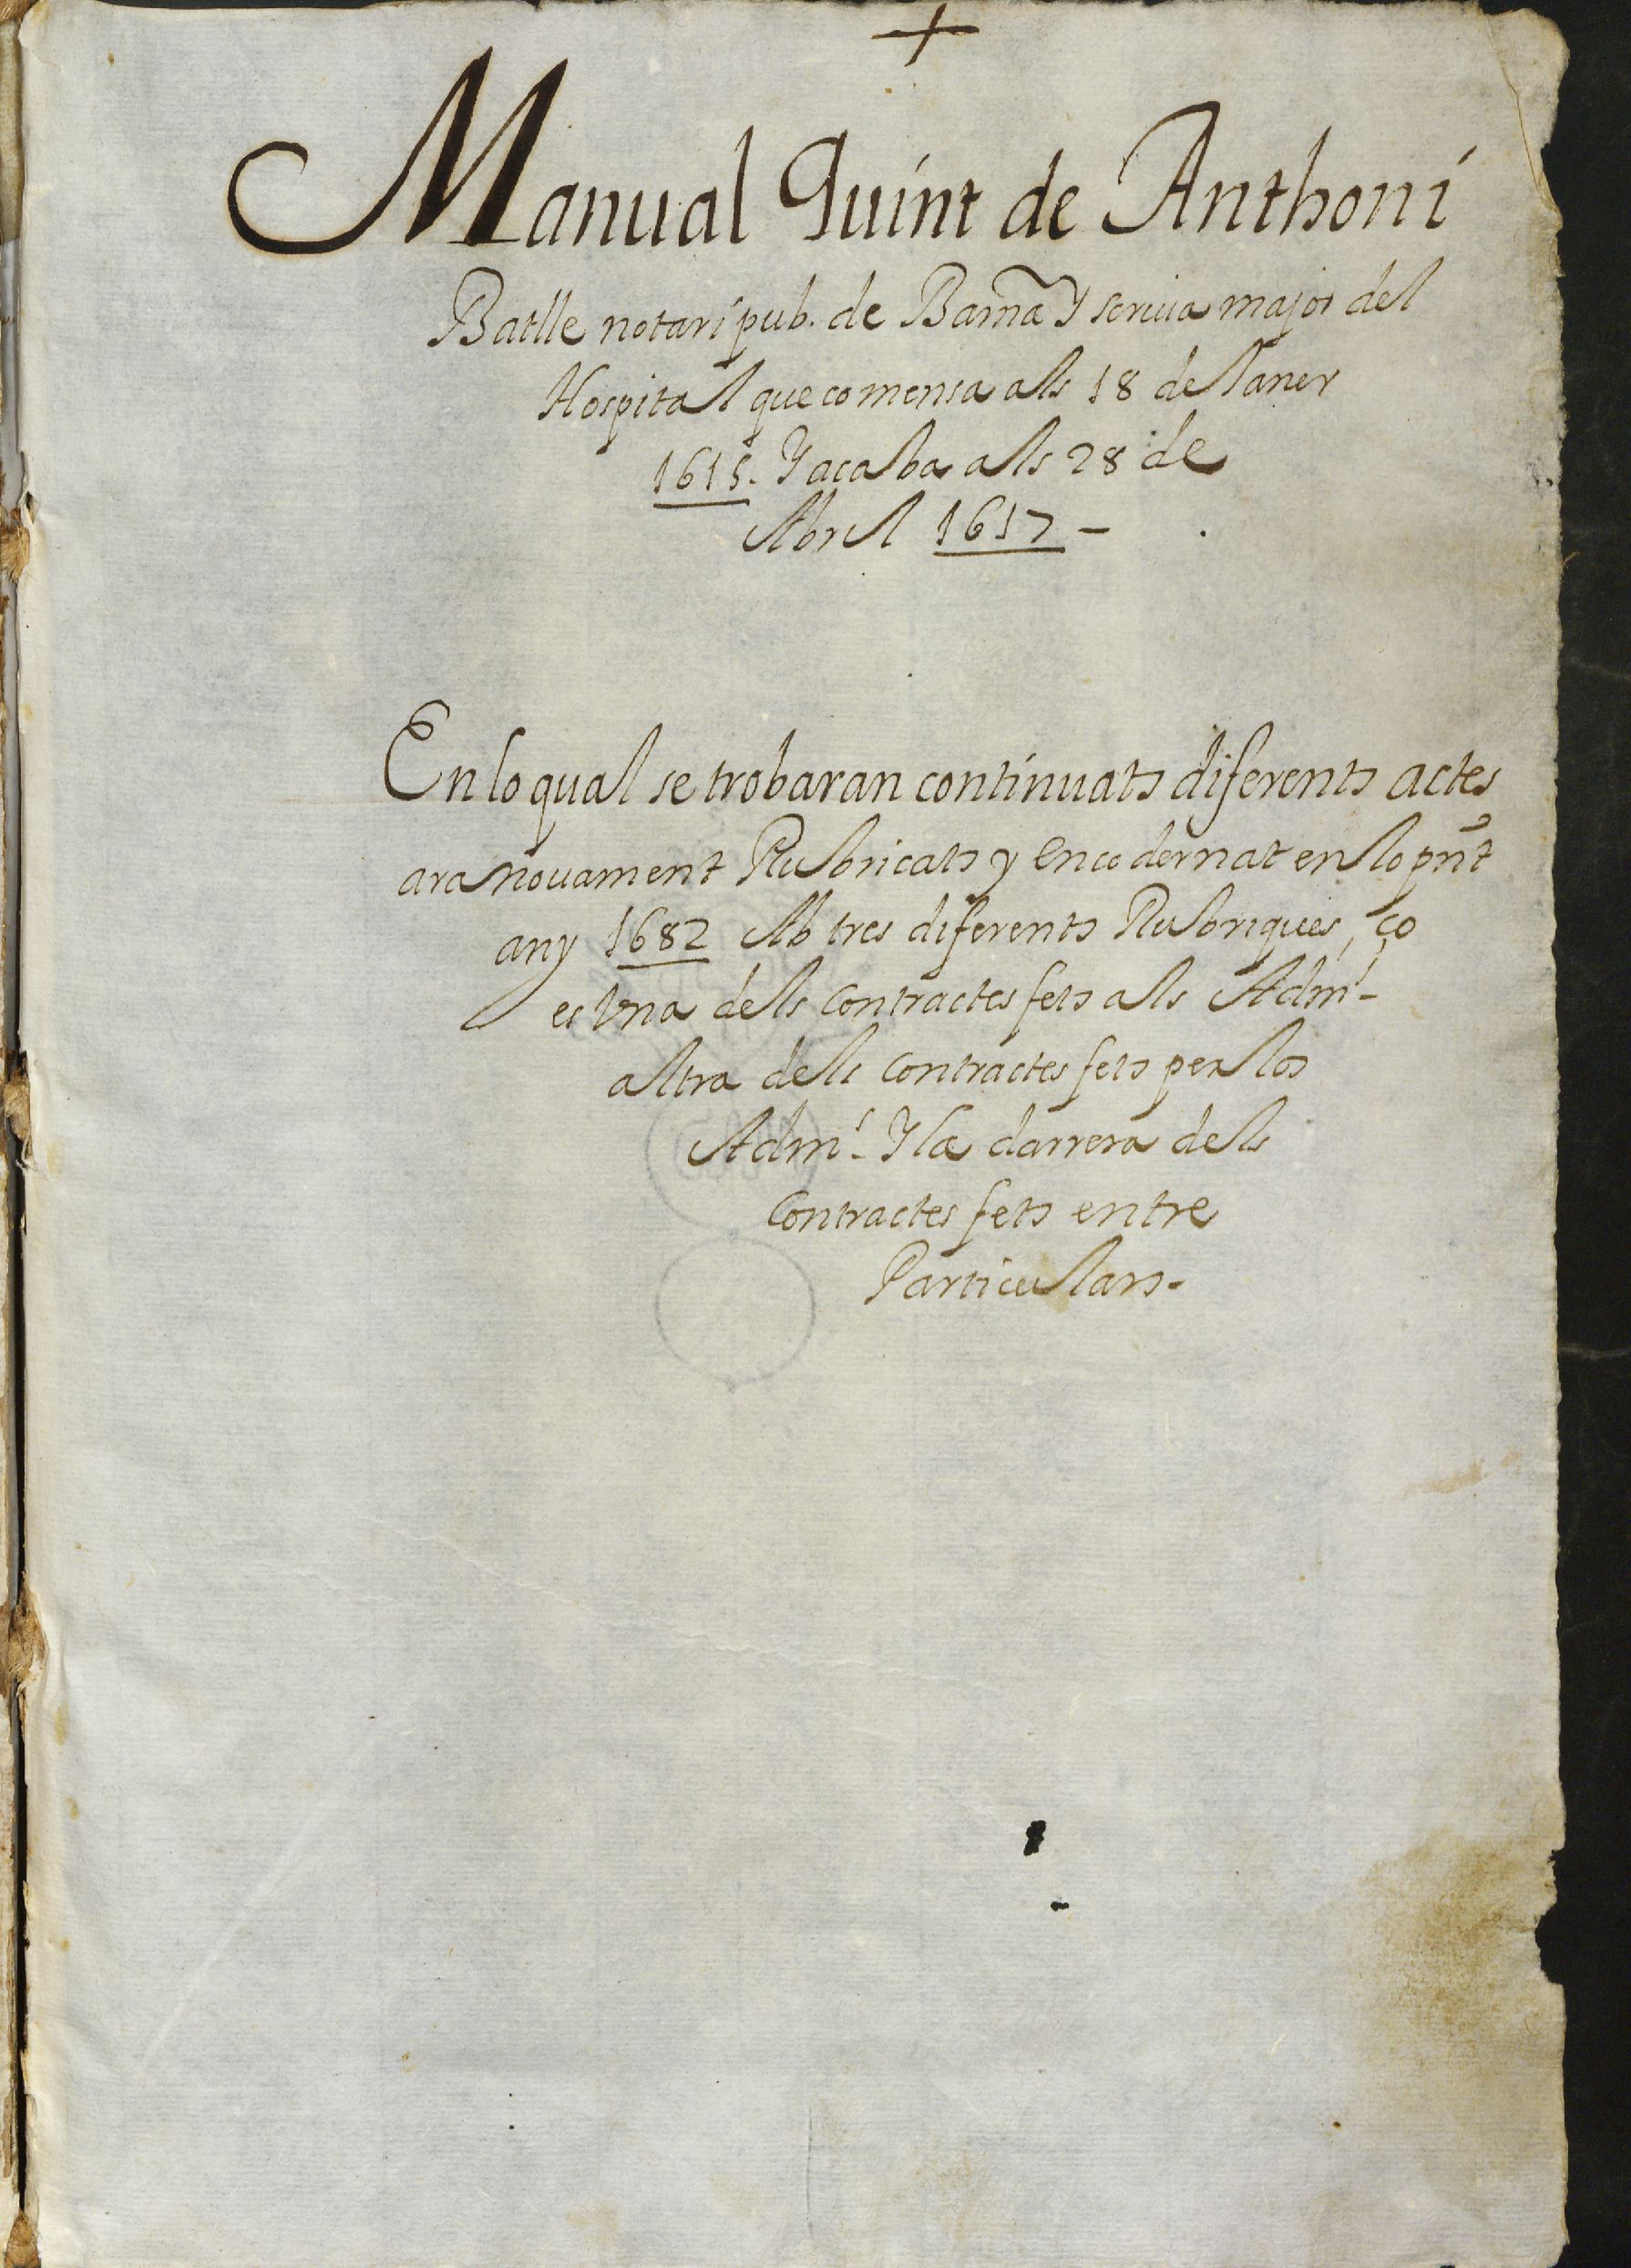 +
Manual Quint de Anthoni
Batlle notari pub. de Barna Y scriua major del
Hospital que comensa als 18 de Janer
1615. Y acaba als 28 de
Abril 1617 -
En lo qual se trobaran continuats diferents actes
ara nouament Rubricats y encodernat en lo pñt
any 1682 Ab tres diferents Rubriques, ço
es Vna dels Contractes fets als Admrs.
altra dels Contractes fets per los
Admrs. Y la darrera dels
Contractes fets entre
Particulars.